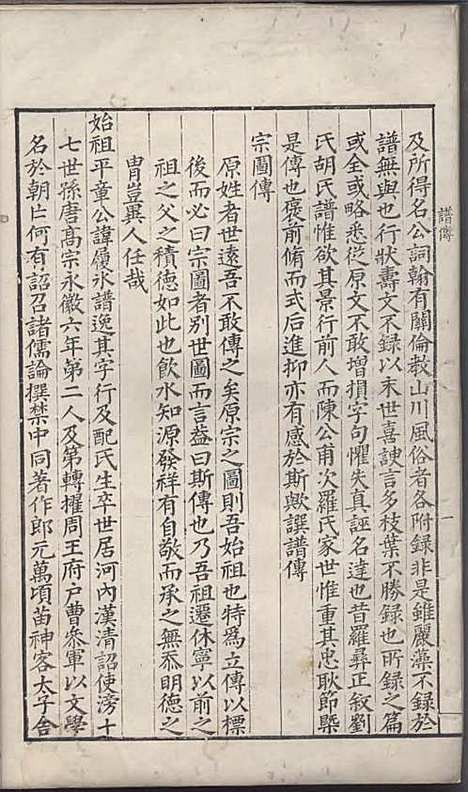 及所得名公詞翰有關倫敎山川風俗者各附錄非是雖麗藻不錄於
譜無與也行狀壽文不錄以末世喜諛言多枝葉不勝錄也所錄之篇
或全或略悉從原文不敢增損字句懼失真誣名違也昔羅彞正敘劉
氏胡氏譜惟欲其景行前人而陳公甫次羅氏家世惟重其忠耿節槩
是傳也褒前脩而式后進抑亦有感於斯歟譔譜傳
宗圖傳
原姓者世遠吾不敢傳之矣原宗之圖則吾始祖也特爲立傳以標
後而必曰宗圖者别世圖而言益曰斯傳也乃吾祖遷休寧以前之
祖之父之積德如此也飮水知源發祥有自敬而承之無忝明德之
胄豈異人任哉
始祖平章公諱履氷譜逸其字行及配氏生卒世居河內漢清詔使滂十
七世孫唐高宗永徽六年第二人及第轉擢周王府户曹叅軍以文學
名於朝片何有詔召諸儒論撰禁中同著作郎元萬頃苗神客太子舍
譜傳
一